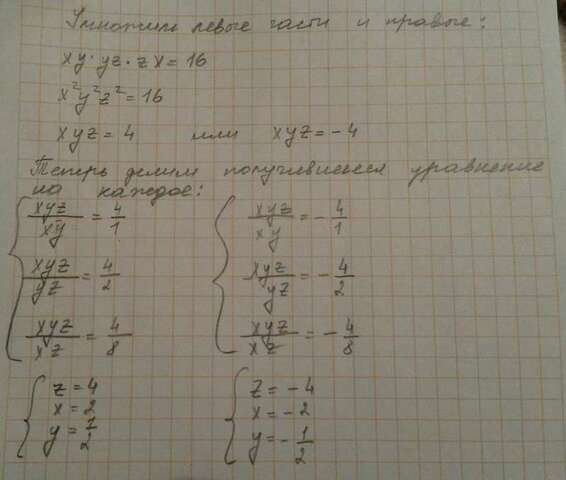 Умножим левые части и правые:
xy·yz·zx=16
x²y²z²=16
xyz=4 или xyz=-4
Теперь делим получившееся уравнение
на каждое:
xyz/xy = 4/1 xyz/xy = -4/1
xyz/yz = 4/2 xyz/yz = -4/2
xyz/xz = 4/8 xyz/xz = -4/8
z=4 z=-4
x=2 x=-2
y=1/2 y=-1/2